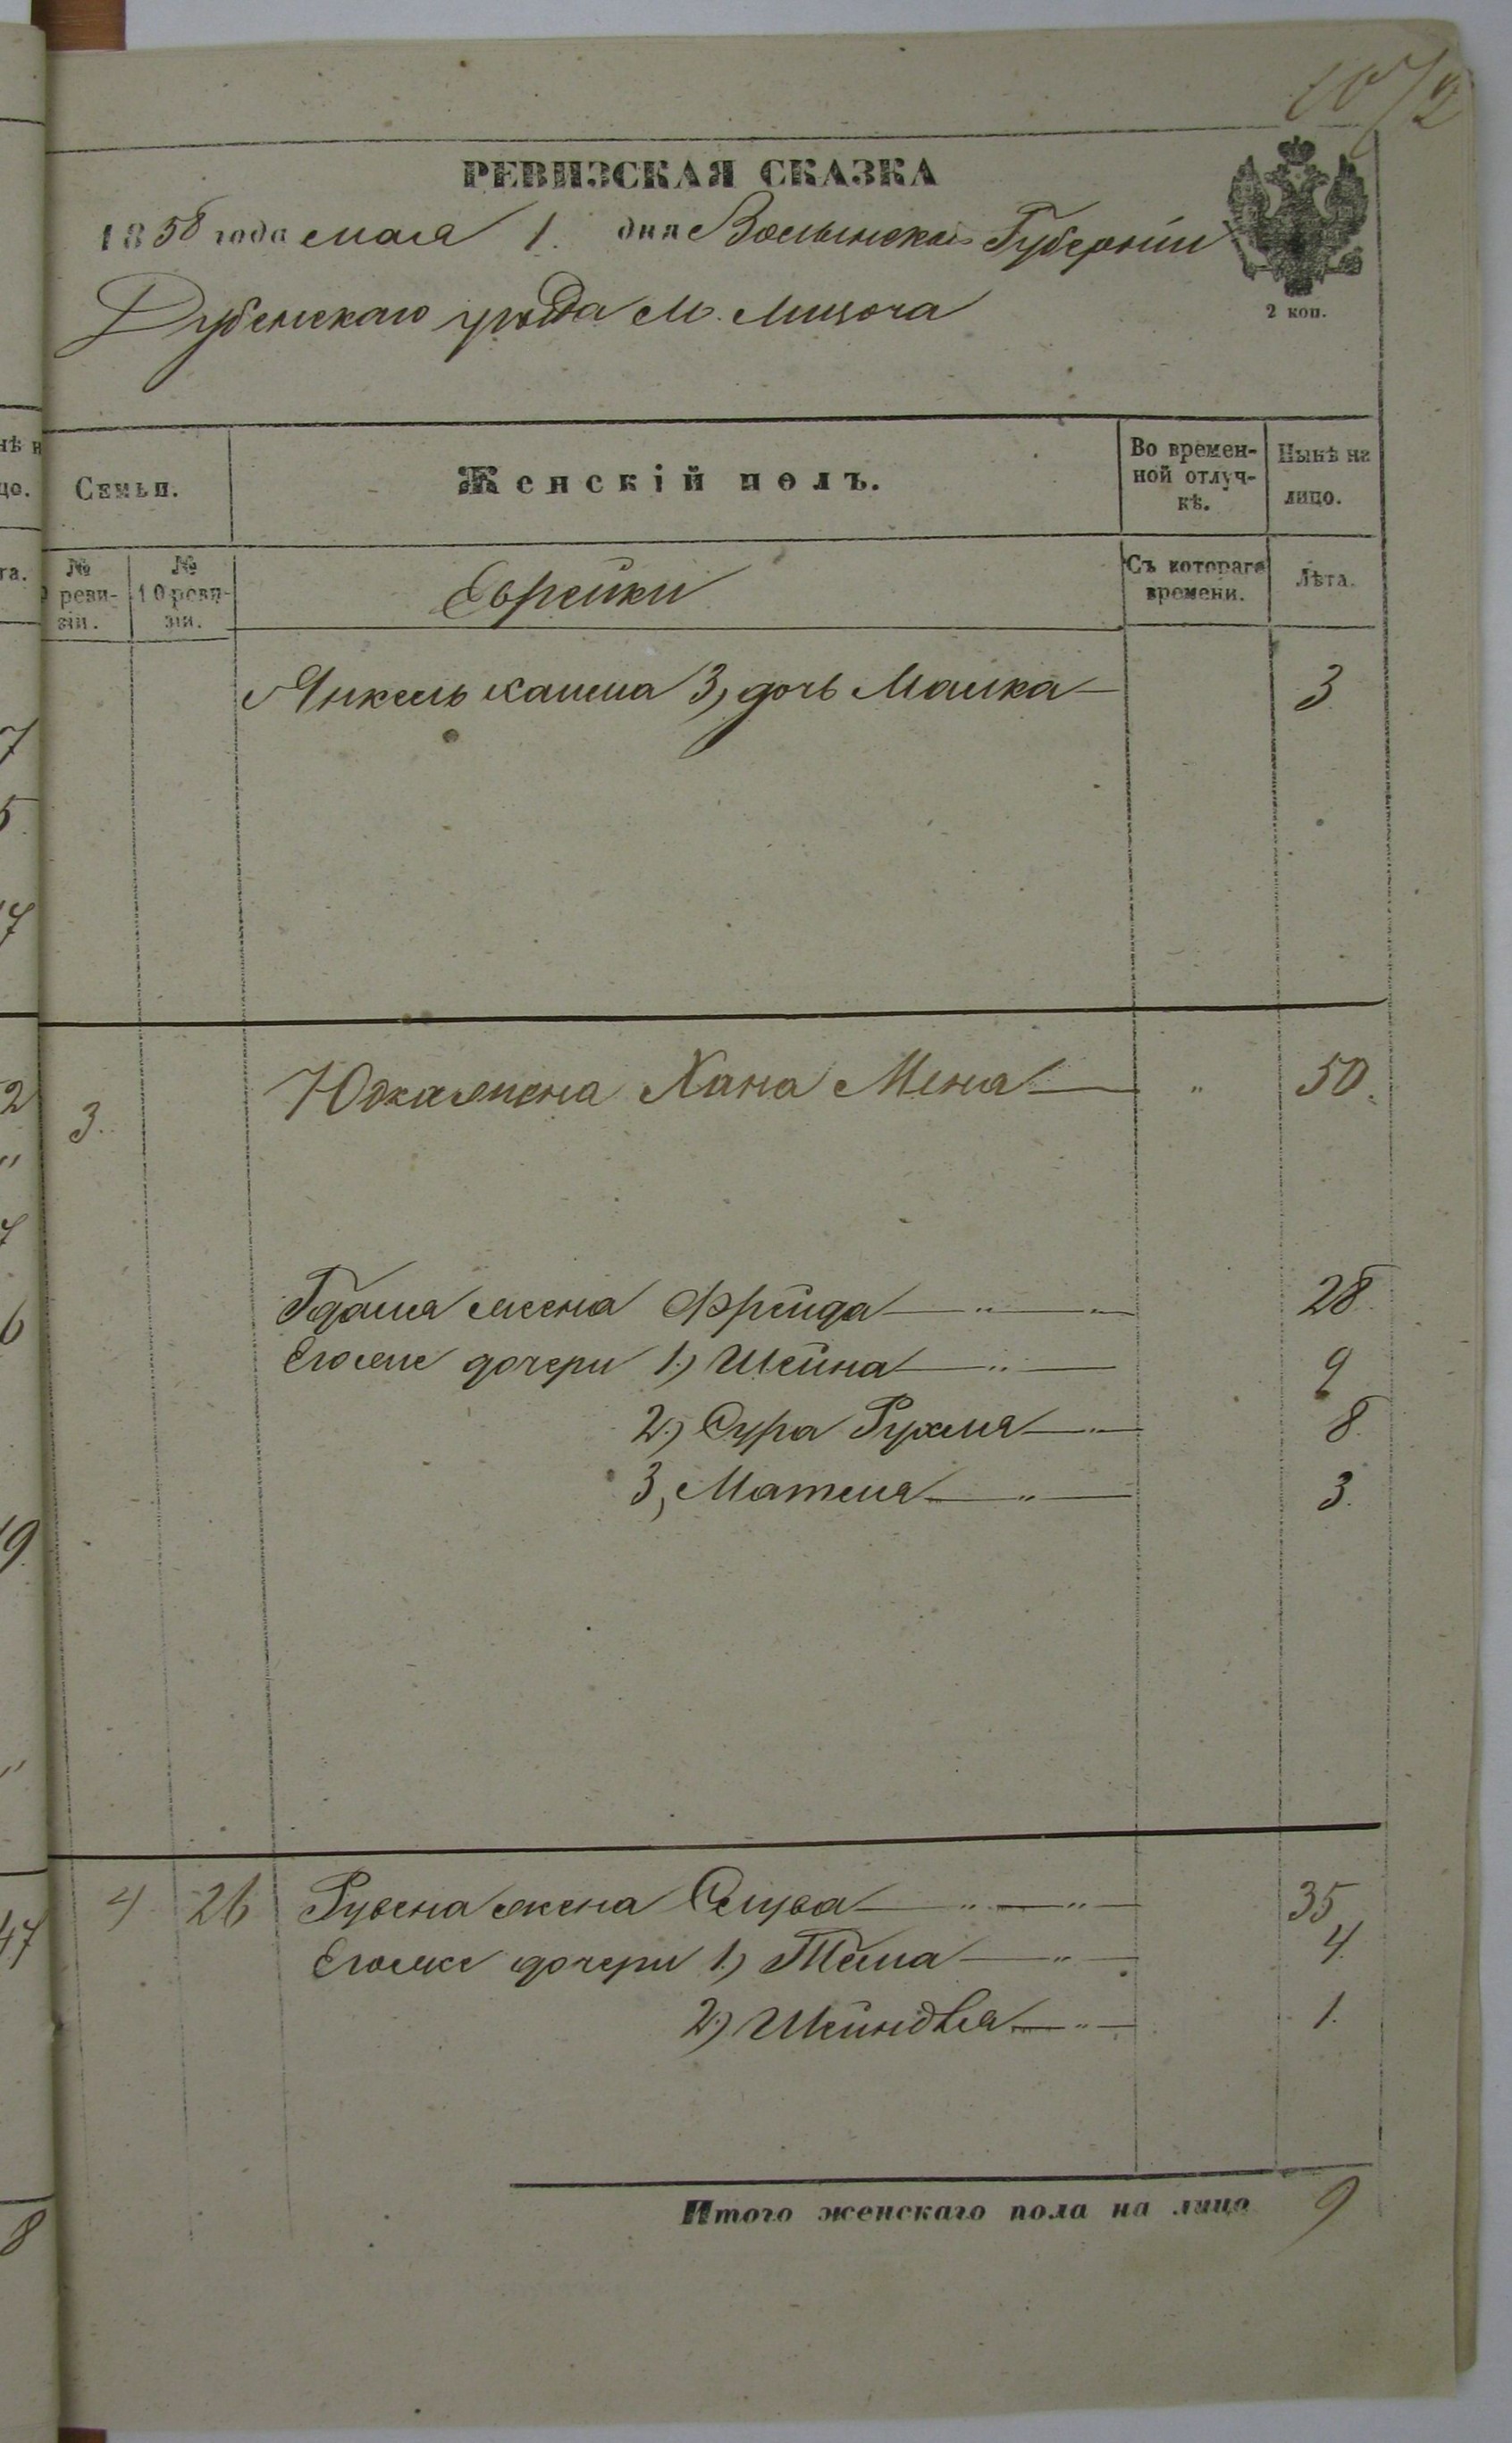 1072
РЕВИЗСКАЯ СКАЗКА
1858 года мая 1. дня Волынской Губернiи
Дубенскаго уѣзда М. Мизоча
2 коп.
Семьи.
Женскiй полъ.
Во времен-
ной отлуч-
кѣ.
Нынѣ на
лицо.
№
9 реви-
зiи.
№
10 реви-
зiи.
Еврейки
Съ котораго
времени.
Лѣта.
Янкель 3, дочь Малка 3
3. Юдка жена Хана Мена " 50.
жена Фрейда " " 28.
Его же дочери 1.) Шейна " 9
2.) Сура Рухля " 8.
3, Матля " 3.
4 26 Рувена жена Слува " " 35
Его же дочери 1.) Тема " 4.
2.) Шейндля " 1.
Итого женскаго пола на лицо 9